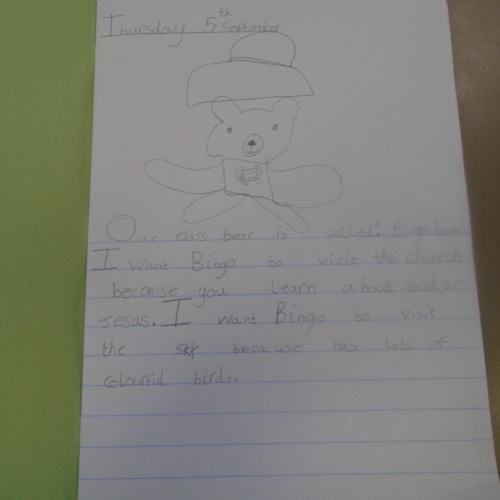 Thursday 5th September
Our class bear is called: Bingo bear
I want Bingo to visit the church
because you learn about God, or
Jesus. I want Bingo to visit
the because has lots of
colourful birds.